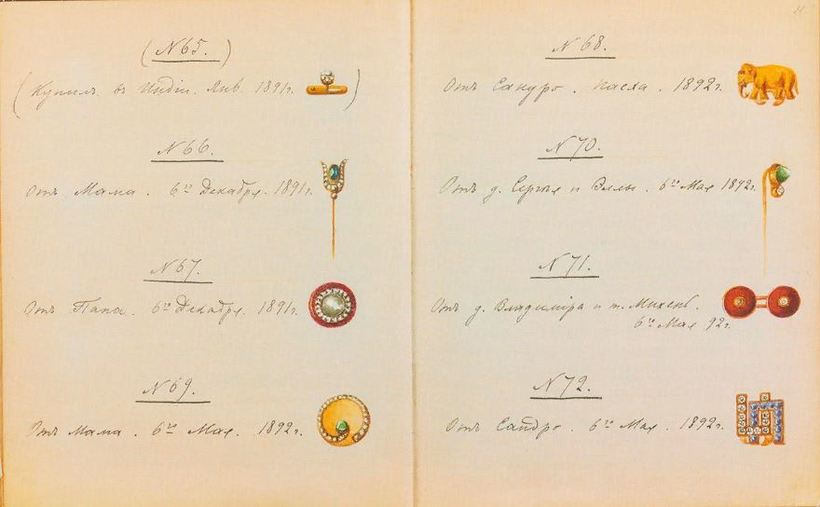 (N 65.)
(Купилъ въ Индіи. Янв. 1891г.)
N 66.
Отъ Мама. 6го Декабря. 1891г.
N 67.
Отъ Папа. 6го Декабря. 1891г.
N 69.
Отъ Мама. 6го Мая. 1892г.
N 68.
Отъ Сандро. Пасха. 1892г.
N 70.
Отъ д. Сергѣя и Эллы. 6го Мая 1892г.
N 71.
Отъ д. Владиміра и т. Михень.
6го Мая 92г.
N 72.
Отъ Сандро. 6го Мая. 1892г.